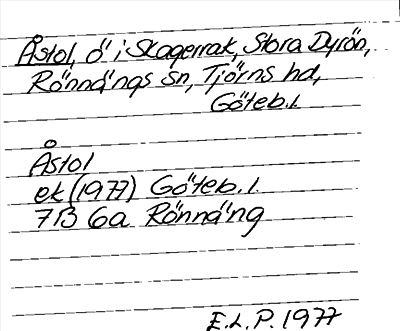 Åstol, ö i Skagerrak, Stora Dyrön,
Rönnängs sn, Tjörns hd,
Göteb.l.
Åstol
ek (1977) Göteb.l.
7B 6a Rönnäng
E.L.P. 1977